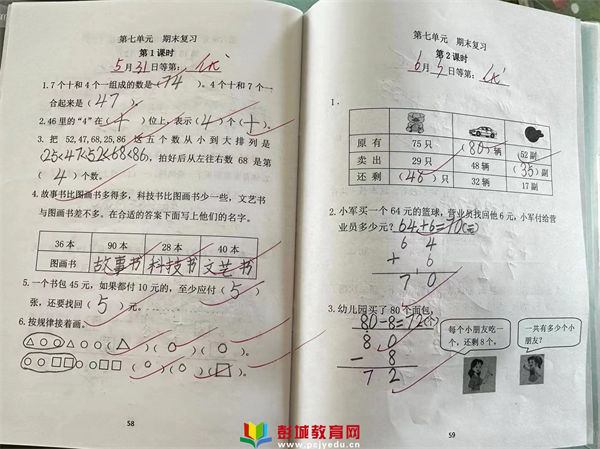 第七单元 期末复习
第1课时
5月31日等第：优
1.7个十和4个一组成的数是（74）。4个十和7个一
合起来是（47）。
2.46里的“4”在（十）位上，表示（4）个（十）。
3.把 52,47,68,25,86 这五个数从小到大排列是
（25<47<52<68<86），拍好后从左往右数 68 是第
（4）个数。
4.故事书比图画书多得多，科技书比图画书少一些，文艺书
与图画书差不多。在合适的答案下面写上他们的名字。
36本 90本 28本 40本
图画书 故事书 科技书 文艺书
5.一个书包45元，如果都付10元的，至少应付（5）
张，还要找回（5）元。
6.按规律接着画。
58
第七单元 期末复习
第2课时
6月 日等第：优
1.
原有 75只 （80）辆 52副
卖出 29只 48辆 （35）副
还剩 （46）只 32辆 17副
2.小军买一个64元的篮球，营业员找回他6元，小军付给营
业员多少元？64+6=70(元)
6 4
+ 6
7 0
3.幼儿园买了80个面包，
80-8=72(个)
8 0
- 8
7 2
每个小朋友吃一
个，还剩8个。
一共有多少个小
朋友？
59
彭城教育网
www.pcjyedu.cn